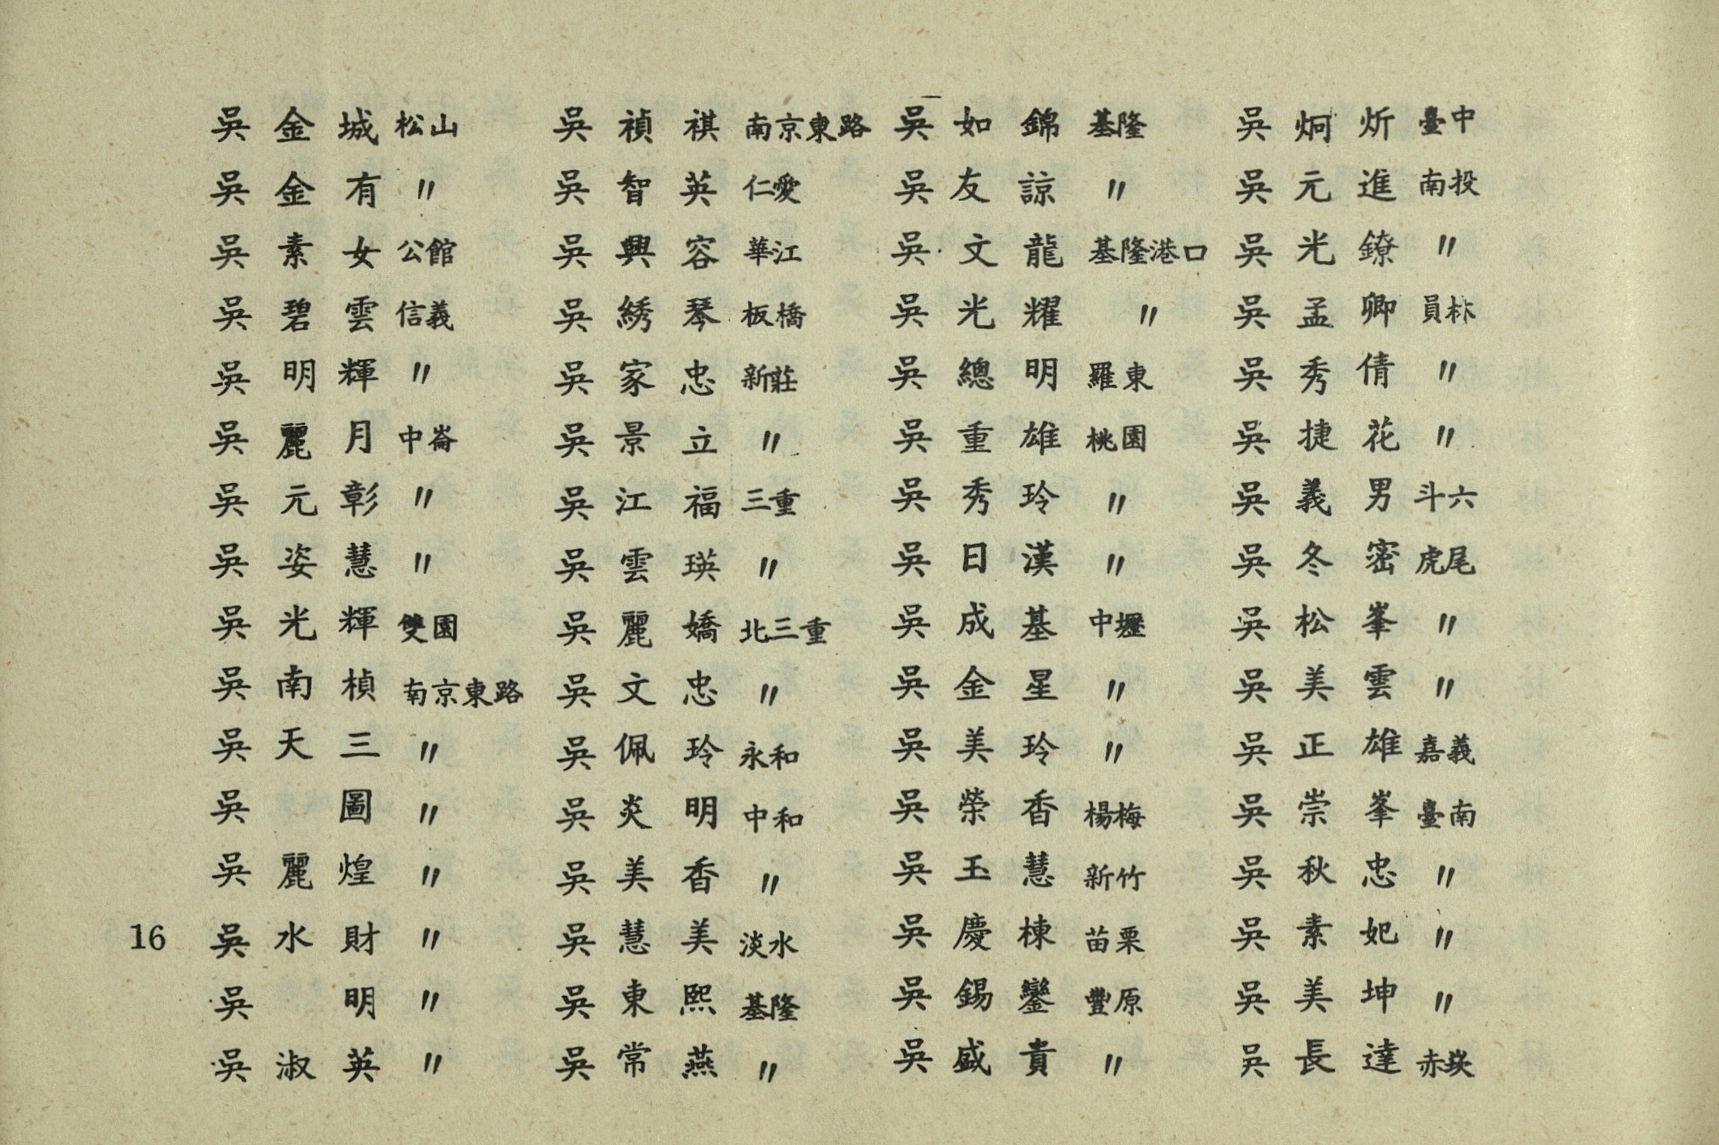 吳金城 松山　吳禎祺 南京東路　吳如錦 基隆　吳炯炘 臺中
吳金有 〃　吳智英 仁愛　吳友諒 〃　吳元進 南投
吳素女 公館　吳興容 華江　吳文龍 基隆港口　吳光鐐 〃
吳碧雲 信義　吳綉琴 板橋　吳光耀 〃　吳孟卿 員林
吳明輝 〃　吳家忠 新莊　吳總明 羅東　吳秀倩 〃
吳麗月 中崙　吳景立 〃　吳重雄 桃園　吳捷花 〃
吳元彰 〃　吳江福 三重　吳秀玲 〃　吳義男 斗六
吳姿慧 〃　吳雲瑛 〃　吳日漢 〃　吳冬密 虎尾
吳光輝 雙園　吳麗嬌 北三重　吳成基 中壢　吳松峯 〃
吳南楨 南京東路　吳文忠 〃　吳金星 〃　吳美雲 〃
吳天三 〃　吳佩玲 永和　吳美玲 〃　吳正雄 嘉義
吳　圖 〃　吳炎明 中和　吳榮香 楊梅　吳崇峯 臺南
吳麗煌 〃　吳美香 〃　吳玉慧 新竹　吳秋忠 〃
16　吳水財 〃　吳慧美 淡水　吳慶棟 苗栗　吳素妃 〃
吳　明 〃　吳東熙 基隆　吳錫鑾 豐原　吳美坤 〃
吳淑英 〃　吳常燕 〃　吳盛貴 〃　吳長達 赤崁